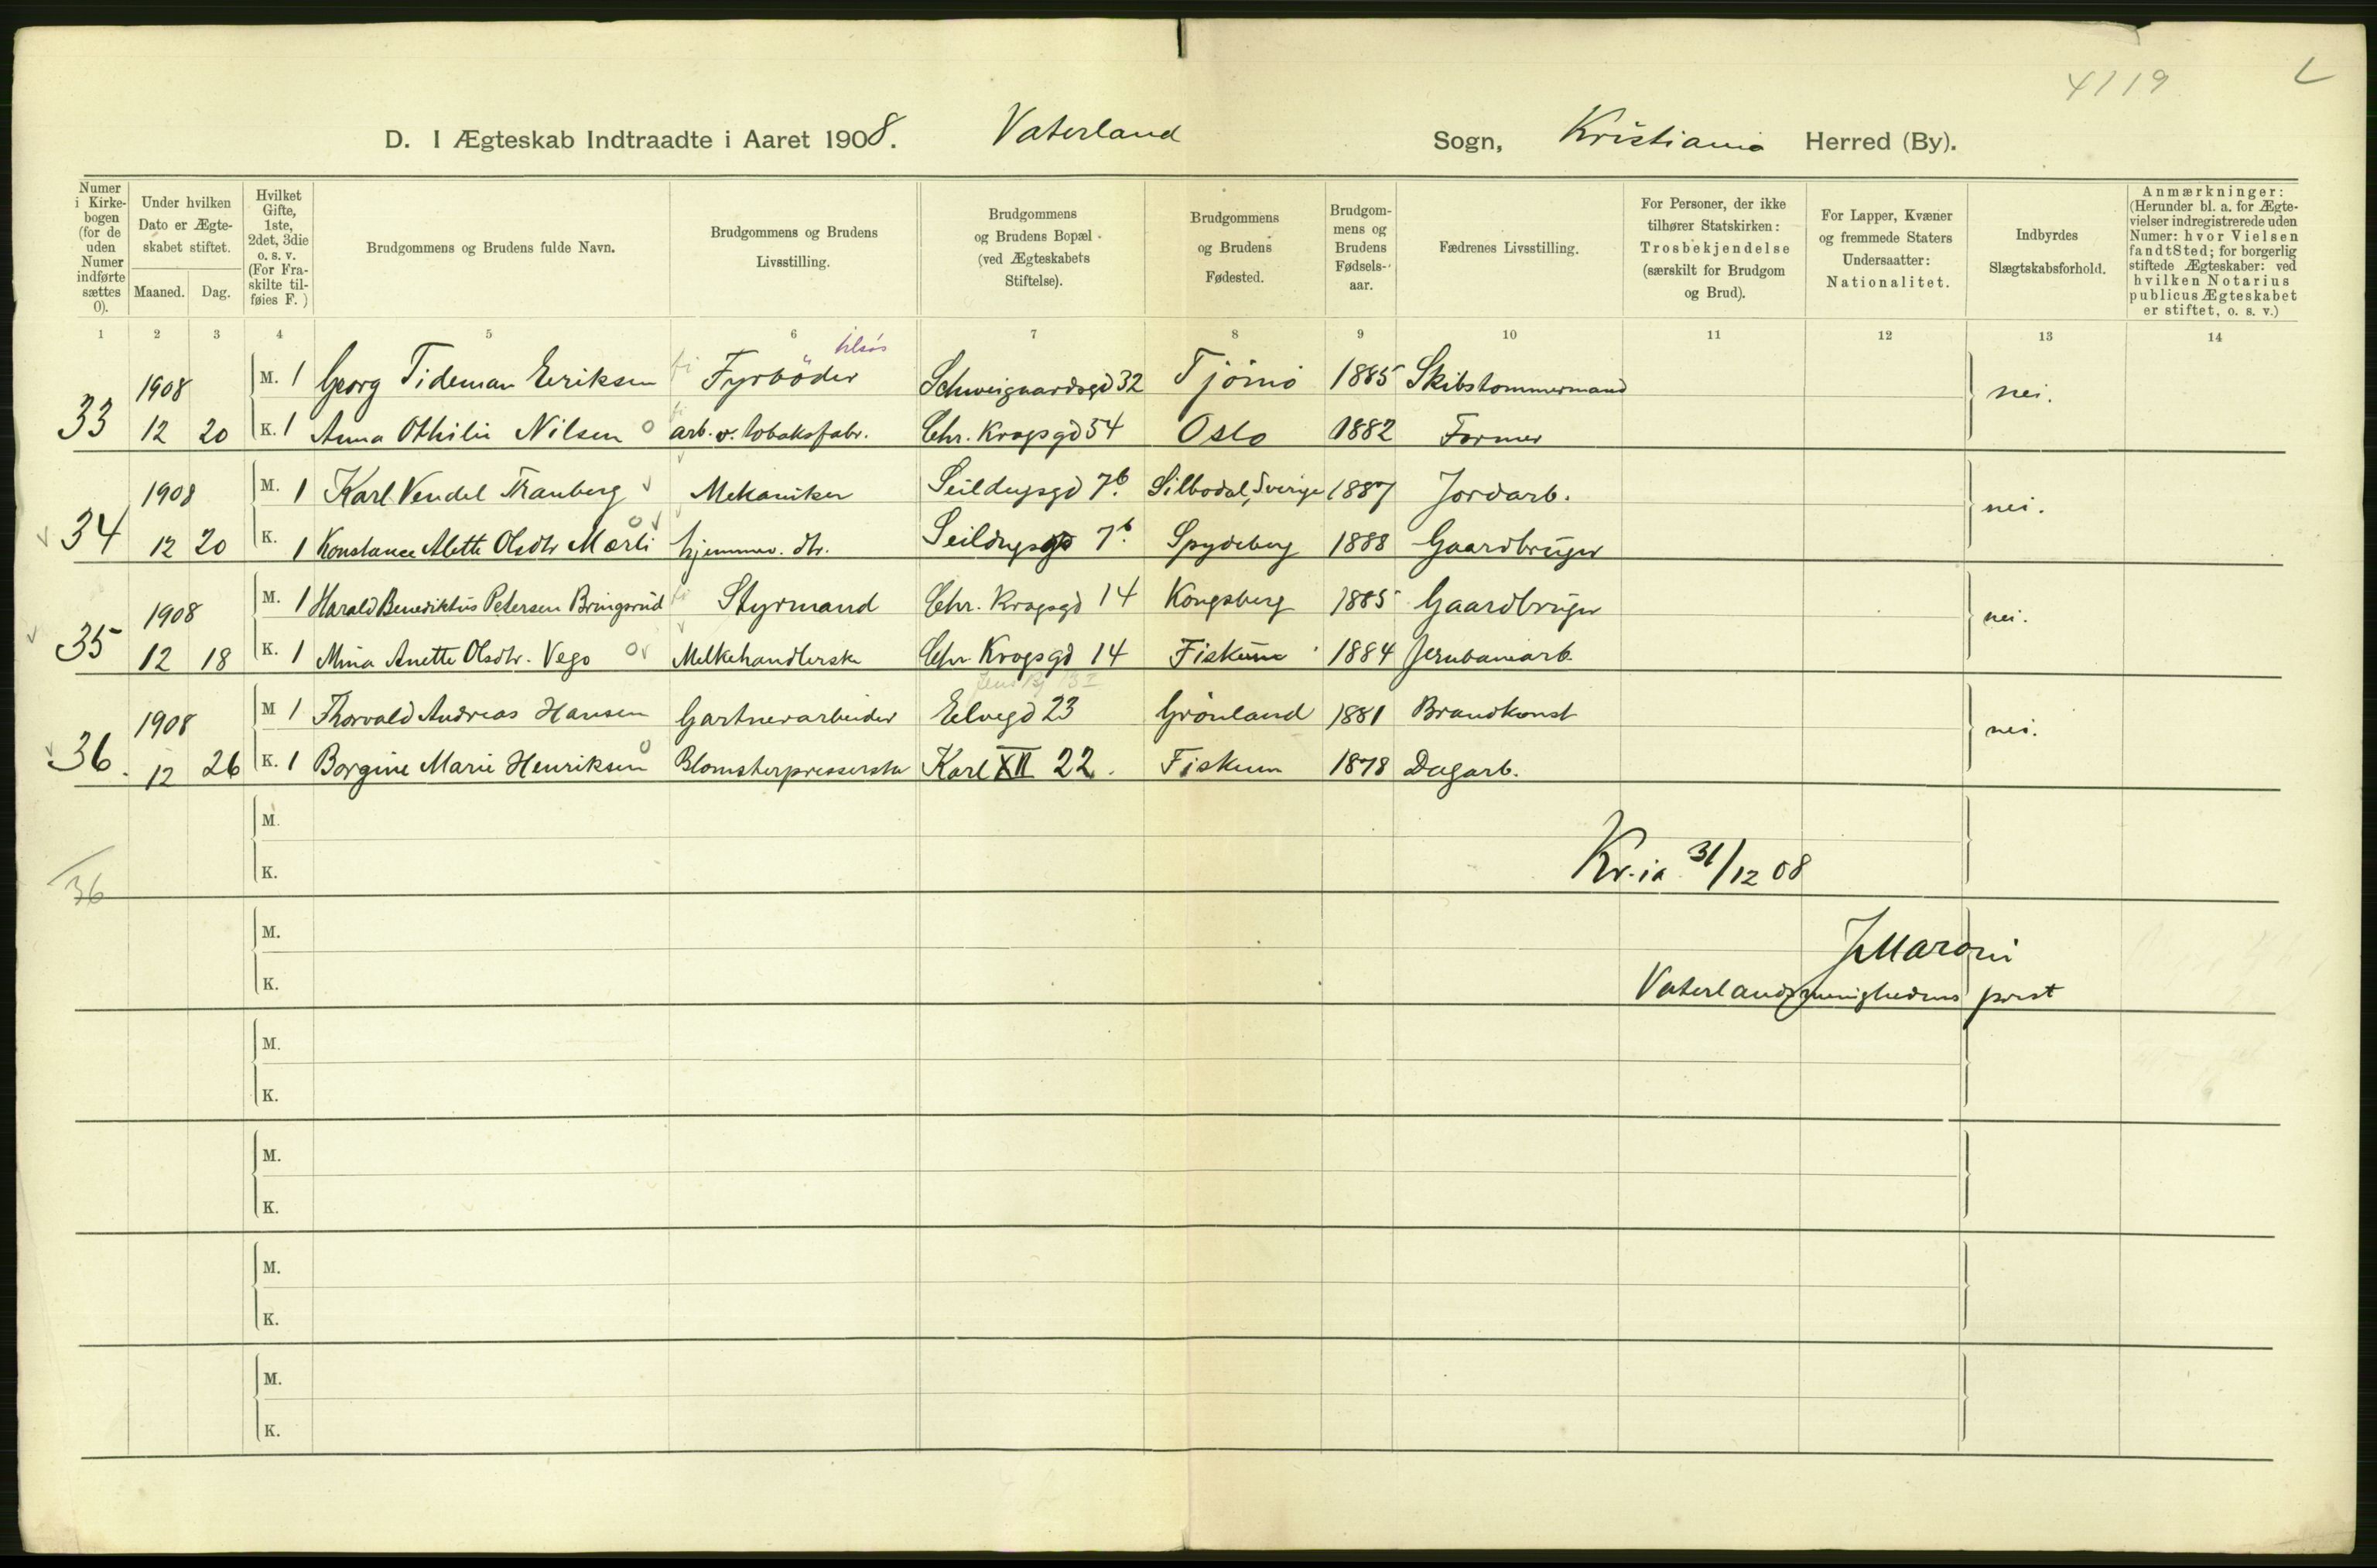 4119
D. I Ægteskab Indtraadte i Aaret 1908. Vaterland Sogn, Kristiania Herred (By).
Numer i Kirkebogen (for de uden Numer indførte sættes 0).
Under hvilken Dato er Ægteskabet stiftet.
Maaned. Dag.
Hvilket Gifte, 1ste, 2det, 3die o. s. v. (For Fraskilte tilføies F.)
Brudgommens og Brudens fulde Navn.
Brudgommens og Brudens Livsstilling.
Brudgommens og Brudens Bopæl (ved Ægteskabets Stiftelse).
Brudgommens og Brudens Fødested.
Brudgommens og Brudens Fødselsaar.
Fædrenes Livsstilling.
For Personer, der ikke tilhører Statskirken: Trosbekjendelse (særskilt for Brudgom og Brud).
For Lapper, Kvæner og fremmede Staters Undersaatter: Nationalitet.
Indbyrdes Slægtskabsforhold.
Anmærkninger: (Herunder bl. a. for Ægtevielser indregistrerede uden Numer: hvor Vielsen fandt Sted; for borgerlig stiftede Ægteskaber: ved hvilken Notarius publicus Ægteskabet er stiftet, o. s. v.)
1 2 3 4 5 6 7 8 9 10 11 12 13 14
tilsös
1908 M. 1 Georg Tideman Eeriksen Fyrböder Schweigaardsgd 32 Tjömö 1885 Skibstommermand nei.
33 12 20 K. 1 Anna Othilie Nilsen o arb. v. tobaksfabr. Chr. Krogsgd 54 Oslo 1882 Former
1908 M. 1 Karl Vendel Tranberg Mekaniker Seildugsgd 7b. Silbodal, Sverige 1887 Jordarb. nei.
34 12 20 K. 1 Konstance Alette Olsdtr Mærli o hjemmev. dtr. Seildugsgd 7b. Spydeberg 1888 Gaardbruger
1908 M. 1 Harald Benediktus Petersen Bringsrud Styrmand Chr. Krogsgd 14 Kongsberg 1885 Gaardbruger nei.
35 12 18 K. 1 Mina Anette Olsdtr. Vego o Melkehandlerske Chr Krogsgd 14 Fiskum 1884 Jernbanearb.
1908 M 1 Thorvald Andreas Hansen Gartnerarbeider Eelvegd 23 Grönland 1881 Brandkonst nei.
36. 12 26 K. 1 Borgine Marie Henriksen o Blomsterpresserske Karl XII 22. Fiskum 1878 Dagarb.
M.
K. Kr.ia 31/12 08
36
M. J Maroni
K. Vaterlandsmenighedens prest
M.
K.
M.
K.
M.
K.
M.
K.